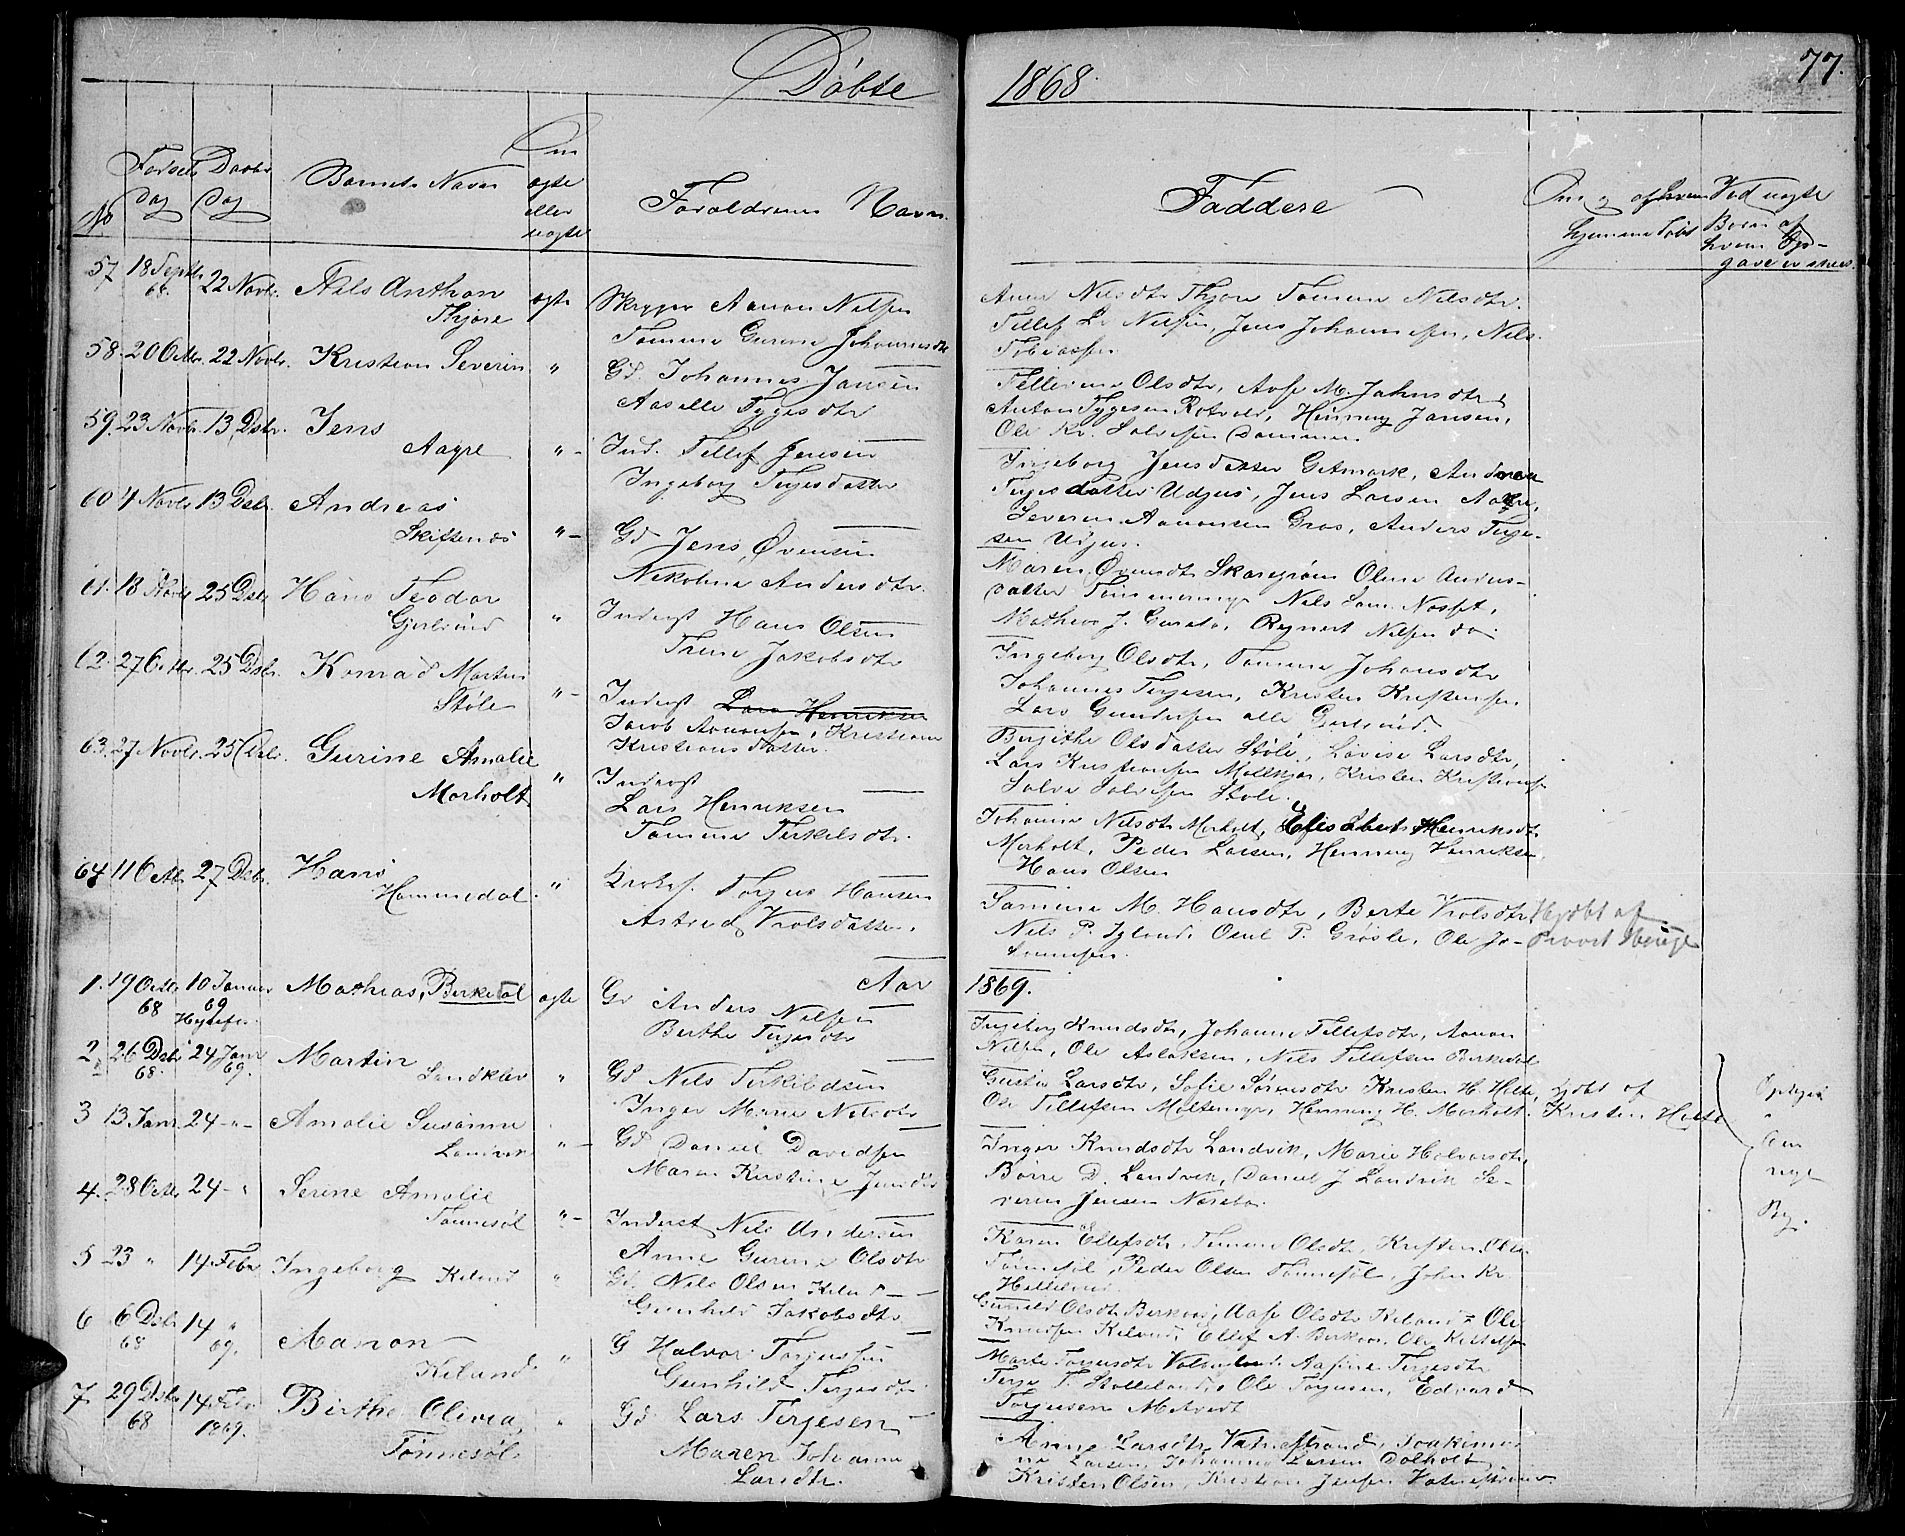 Döbte
1868.
77.
No
Fødsels Dag
Daabs Dag
Barnets Navn
Om ægte eller uægte
Forældrenes Navn
Faddere
Om og af hvem hjemme døbt
Ved uægte Børn af hvem Opgave er skeet.
57 18 Septbr 68. 22 Novbr. Nils Anthon Thjøre ægte
Skipper Aanon Nilsen
Tomine Gurine Johannesdtr
Anne Nilsdtr Thjøre Tomine Nilsdtr.
Tellef Nilsen, Jens Johannesen, Nils
Tobiassen
58. 20 Octbr. 22 Novbr. Kristian Severin "
Gd. Johannes Jansen
Aaselle Tygesdtr
Tellevine Olsdtr, M. Jahnsdtr,
Anton Tygesen Rotvold, Henning Jansen,
Ole Kr. Salvesen Dommen.
59. 23 Novbr. 13 Dsbr. Jens Aagre "-
Ind. Tellef Jensen
Ingeborg Terjesdatter
Ingeborg Jensdatter Getmark, Andrea
Terjesdatter Udjus, Jens Larsen Aagre,
Severin Aanonsen Gros, Anders Terje-
sen Udjus.
60 4 Novbr 13 Dsbr. Andreas Skiftenes "-
Gd Jens Øvensen
Nikoline Andersdtr.
Maren Øvensdtr Skaregrøm Oline Anders-
datter Nils
Mathias J. Reynert Nilsen do
61. 18 Novbr 25 Dsbr Hans Teodor Gjerlund "
Inderst Hans Olsen
Trine Jakobsdtr
Ingeborg Olsdtr, Tomine Johansdtr
Johannes Terjesen, Kristen Kristensen
Lars Gundersen alle
62. 27 Octbr. 25 Dsbr. Konrad Martin Støle "-
Inderst Lars Henriksen
Jacob Aanonsen, Kristiane
Kristiansdatter.
Birgithe Olsdatter Støle, Lovise Larsdtr,
Lars Kristiansen Mollkjær, Kristen Kristiansen
Salve Salvesen Støle.
63. 27 Novbr. 25 Dsbr. Gurine Amalie Morholt "
Inderst
Lars Henriksen
Tomine Terkelsdtr.
Johanne Nilsdtr Morholt, Elisabeth Henriksdtr
Morholt, Peder Larsen, Henning Henriksen,
Hans Olsen
64 11 Octbr. 27 Dsbr. Hans Hommedal. "
Torjus Hansen
Astrid Vrolsdatter.
Tomine M. Hansdtr, Berte Vrolsdtr
Nils P. Igland, Omul P. Grøsle, Ole Jo-
annsen.
Hjdbt af
Provst Hauge
Aar 1869.
1. 19 Octbr 68 10 Januar 69 Mathias, Birkedal ægte
Gd Anders Nilsen
Berthe Terjesdtr
Ingeborg Knudsdtr, Johanne Tellefsdtr, Aanon
Nilsen, Ole Aslaksen, Nils Tellefsen Birkedal
2. 26 Dsbr 68. 24 Janr 69. Martin Landklev "
Gd Nils Terkildsen
Inger Marie Nilsdtr
Gustia Larsdtr, Sofie Sørensdtr Kristen H. Holte
Ole Tellefsen Moltemyr, Henning H. Morholt.
Hjdbt af
Kristen Holte
3 13 Janr. 24 -"- Amalie Susanne Landvik "-
Gd Daniel Davidsen
Maren Kristine Jensdtr
Inger Knudsdtr Landvik, Marie Halvorsdtr,
Børre D. Landvik, Daniel J Landvik Se-
verin Jensen Næsebø.
4. 28 Octbr 24 -" Serine Amalie Tønnesøl "-
Inderst Nils Andersen
Anne Gurine Olsdtr
Karen Ellefsdtr, Tomine Olsdtr, Kristen Olsen
Tønnesøl, Peder Olsen Tønnesøl, John Kr.
5 23 " 14 Febr Ingeborg Kilund "
Gd. Nils Olsen Kilund
Gunhild Jakobsdtr
Gunild Olsdtr Birkeas, Aase Olsdtr Kilund, Ole
Knudsen Kilund, Ellef A. Birkeas, Ole Kittelsen
6 6 Dsbr 68 14 " 69. Aanon Kilund "
G Halvor Torjussen
Gunhild Terjesdtr
Marte Torjusdtr Aasine Terjesdtr
Terje T. Stalleland, Ole Torjusen, Edvard
Torjusen
7. 29 Dsbr 68 14 Febr 1869. Birthe Olivia Tønnesøl. "
Gd Lars Terjesen
Maren Johanne
Larsdtr.
Anne Larsdtr Vatnestrand, Joakim
Larsen, Johannes Larsen Dolholt,
Kristen Olsen, Kristian Jensen Vatnestrand